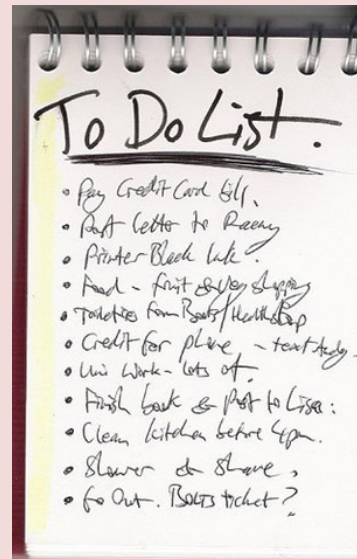 To Do List.
• Pay Credit Card bill.
• Post letter to
• Printer Black Ink.
• Food - fruit & veg shopping
• Toiletries from Boots/Health Shop
• Credit for phone - text Andy.
• Uni Work - lots of.
• Finish book & Post to Lisa.
• Clean kitchen before 4pm.
• Shower & Shave.
• Go Out. ticket?